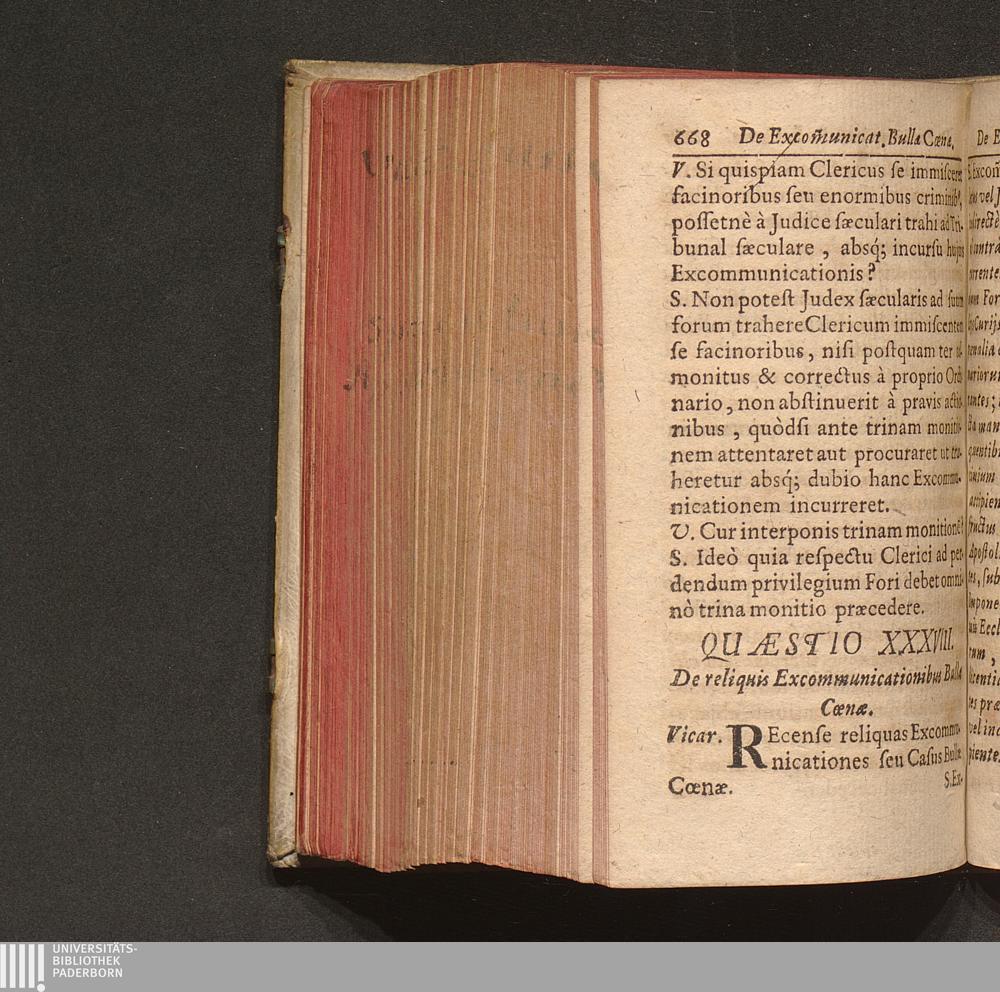 668 De Excom̃unicat. Bullæ Cœnæ.
V. Si quispiam Clericus ſe immiſceret
facinoribus ſeu enormibus criminibꝰ,
poſſetnè à Judice ſæculari trahi ad Tri-
bunal ſæculare , absq́; incurſu hujus
Excommunicationis?
S. Non poteſt Judex ſæcularis ad ſuum
forum trahere Clericum immiſcentem
ſe facinoribus, niſi poſtquam ter ad-
monitus & correctus à proprio Ordi-
nario, non abſtinuerit à pravis actio-
nibus , quòdſi ante trinam monitio-
nem attentaret aut procuraret ut tra-
heretur absq́; dubio hanc Excommu-
nicationem incurreret.
V. Cur interponis trinam monitionē?
S. Ideò quia reſpectu Clerici ad per-
dendum privilegium Fori debet omni-
nò trina monitio præcedere.
QUÆSTIO XXXVIII.
De reliquis Excommunicationibus Bullæ
Cœnæ.
Vicar. REcenſe reliquas Excommu-
nicationes ſeu Caſus Bullæ
Cœnæ.
S. Ex-
UNIVERSITÄTS-
BIBLIOTHEK
PADERBORN